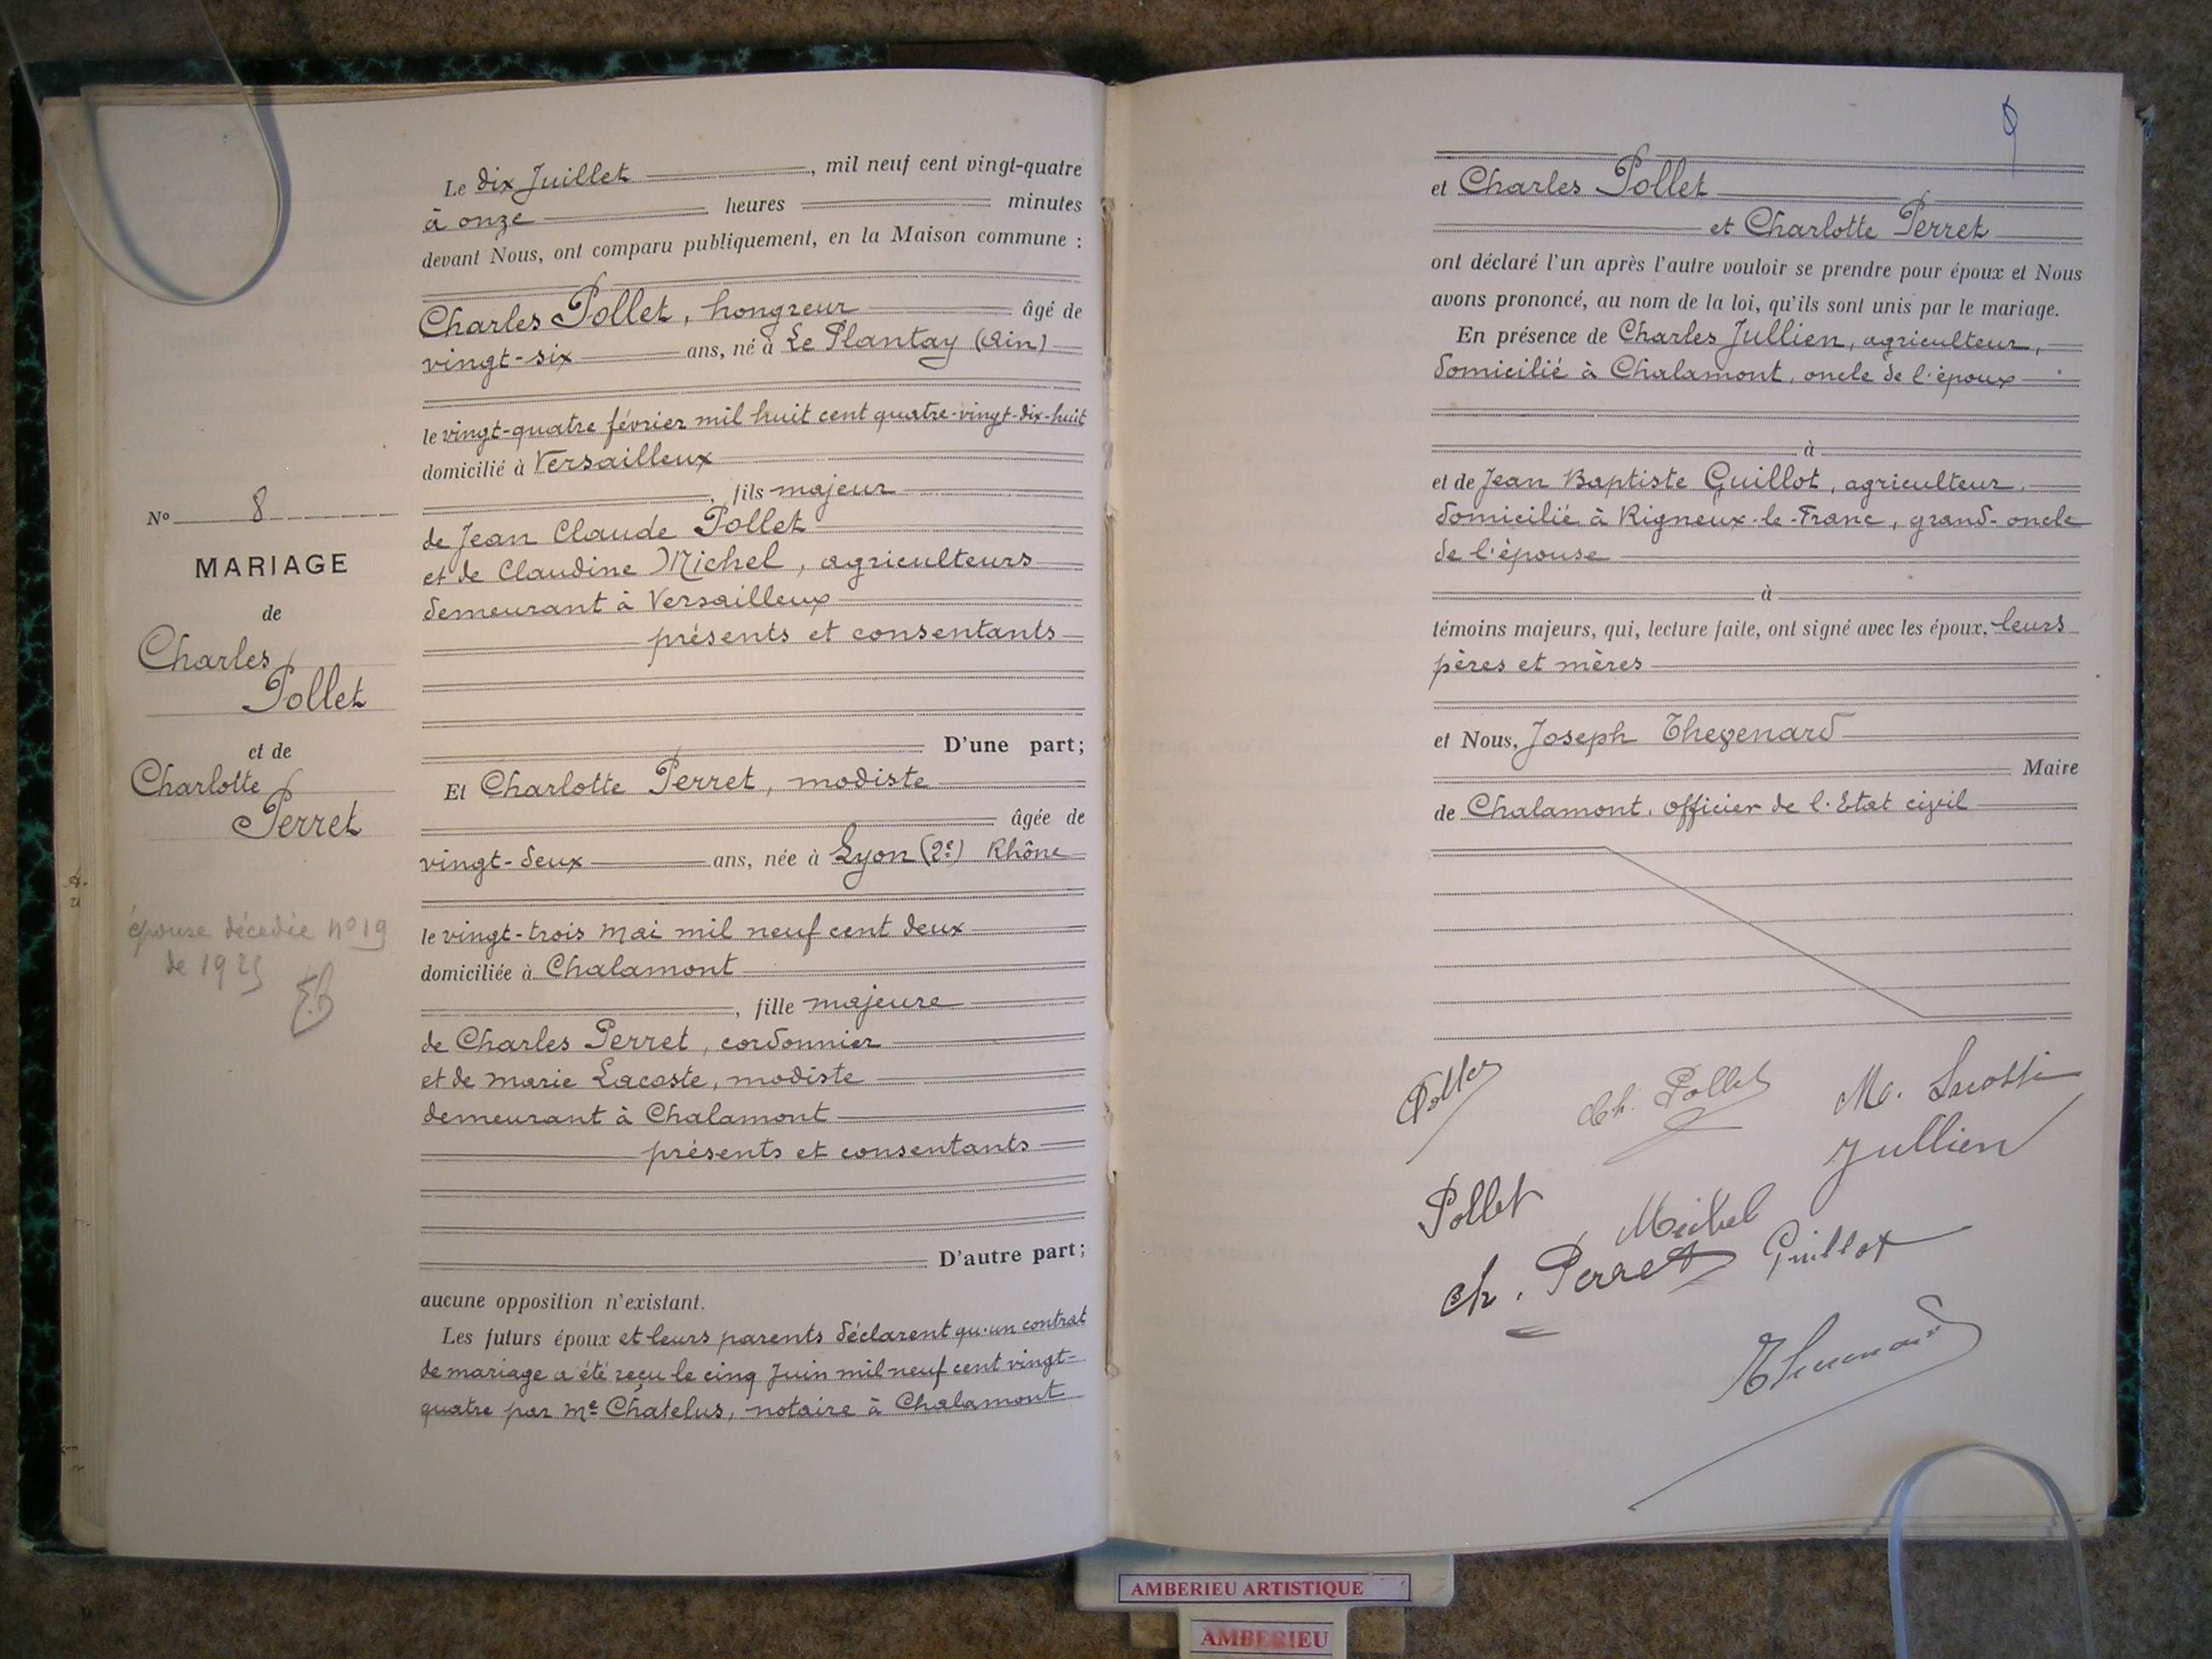 N° 8
MARIAGE
de
Charles
Pollet
et de
Charlotte
Perret
épouse décédée n° 19
Le dix Juillet, mil neuf cent vingt-quatre
à onze heures minutes
devant Nous, ont comparu publiquement, en la Maison commune :
Charles Pollet, hongreur âgé de
vingt-six ans, né à Le Plantay (Ain)
le vingt-quatre février mil huit cent quatre-vingt-dix-huit
domicilié à Versailleux
, fils majeur
de Jean Claude Pollet
et de Claudine Michel, agriculteurs
demeurant à Versailleux
présents et consentants
D'une part;
Et Charlotte Perret, modiste
âgée de
vingt-deux ans, née à Lyon (2e) Rhône
le vingt-trois mai mil neuf cent deux
domiciliée à Chalamont
, fille majeure
de Charles Perret, cordonnier
et de marie Lacoste, modiste
demeurant à Chalamont
présents et consentants
D'autre part;
aucune opposition n'existant.
Les futurs époux et leurs parents déclarent qu'un contrat
de mariage a été reçu le cinq Juin mil neuf cent vingt-
quatre par Me Chatelus, notaire à Chalamont
et Charles Pollet
et Charlotte Perret
ont déclaré l'un après l'autre vouloir se prendre pour époux et Nous
avons prononcé, au nom de la loi, qu'ils sont unis par le mariage.
En présence de Charles Jullien, agriculteur,
domicilié à Chalamont, oncle de l'époux
à
et de Jean Baptiste Guillot, agriculteur,
domicilié à Rigneux-le-Franc, grand-oncle
de l'épouse
à
témoins majeurs, qui, lecture faite, ont signé avec les époux, leurs
pères et mères
et Nous, Joseph Thevenard
Maire
de Chalamont, officier de l'Etat civil
Ch. Pollet
Jullien
Pollet
Michel
Ch. Perret Guillot
Thevenard
AMBERIEU ARTISTIQUE
AMBERIEU